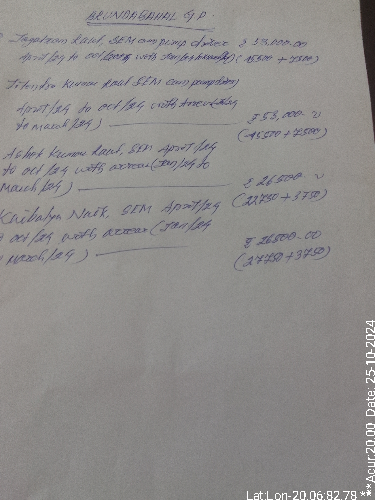 BRUNDABAHAL G.P.
Jagatram Raut, SEM cum pump driver ₹ 53,000.00
April/24 to oct/24 with (45500 + 7500)
Jitendra Kumar Raut SEM cum pump
April/24 to oct/24 with arrear
to march/24) ₹ 53,000-00
(45500+7500)
Ashok Kumar Raut, SEM April/24
to oct/24 with arrear (Jan/24 to
March/24) ₹ 26500-00
(22750+3750)
Naik, SEM April/24
oct/24 with arrear (Jan/24
March/24) ₹ 26500-00
(27750+3750)
Lat:Lon-20.06:82.78 ***Acur:20.00, Date: 25-10-2024